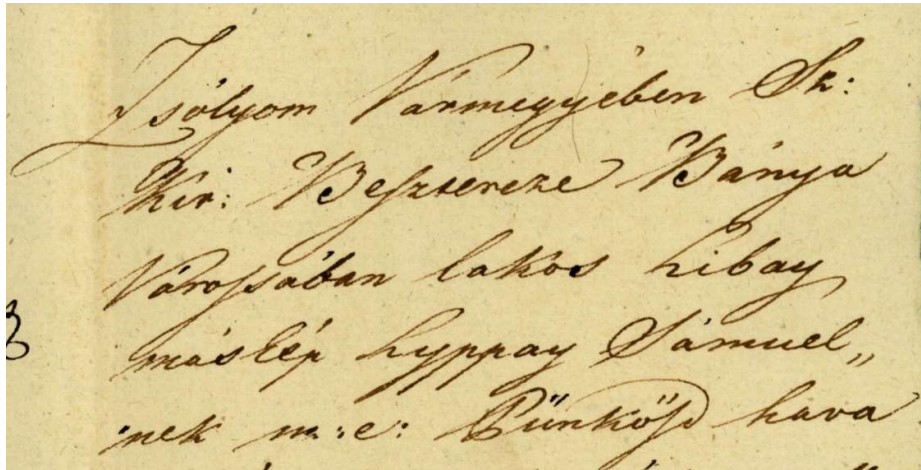 Zsólyom Vármegyében Sz:
Kir: Besztercze Bánya
Várossában lakos Libay
máskép Lyppay Sámuel„
nek m: e: Pünkösd hava